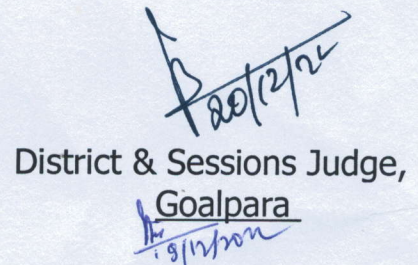 20/12/22
District & Sessions Judge,
Goalpara